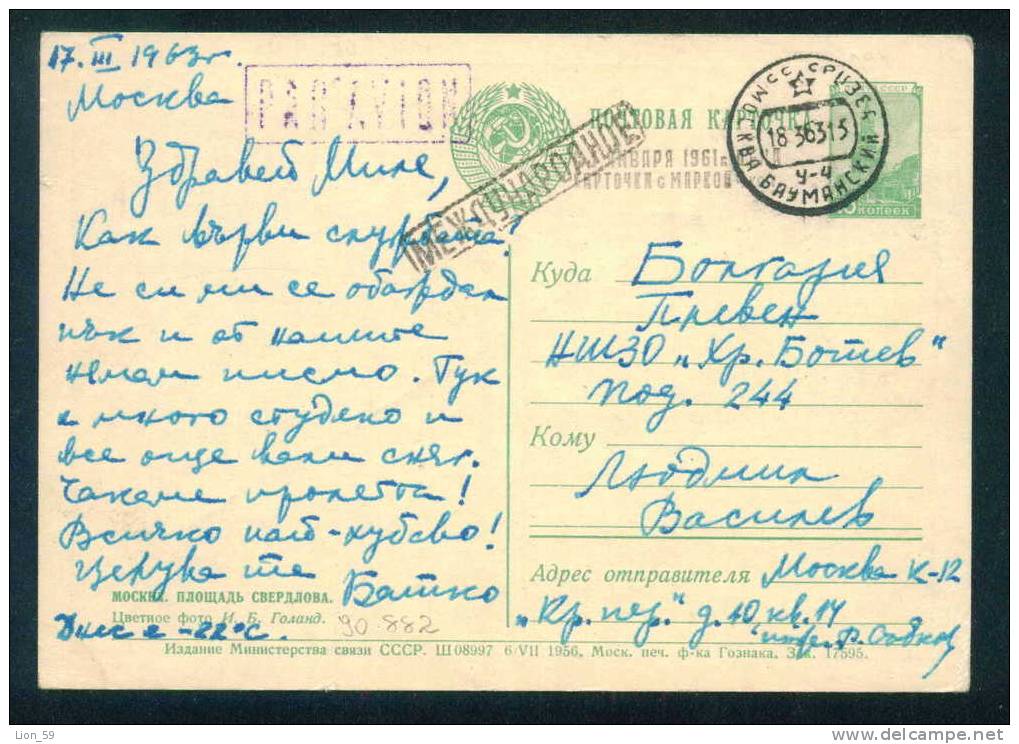 17.III 1963г.
Москва
PAR AVION
ПОЧТОВАЯ КАРТОЧКА
МЕЖДУНАРОДНОЕ
ЯНВАРЯ 1961г.
КАРТОЧКА с МАРКОЙ
СССР
МОСКВА БАУМАНСКИЙ
18 3 63 13
У-4
КОПЕЕК
Здравей Миле,
Как върви службата?
Не си ми се обаждал
пък и от нашите
нямам писмо. Тук
е много студено и
все още вали сняг.
Чакаме пролетта!
Всичко най-хубаво!
Целува те
Батко
Днес е -22°С.
Куда Болгария
Плевен
НШЗО „Хр. Ботев"
под. 244
Кому Людмил
Василев
Адрес отправителя Москва К-12
„Кр. пер." д. 10, кв. 14
МОСКВА. ПЛОЩАДЬ СВЕРДЛОВА.
Цветное фото И. Б. Голанд.
90 882
Издание Министерства связи СССР. Ш 08997 6/VII 1956, Моск. печ. ф-ка Гознака. Зак. 17595.
Lion_59
www.delcampe.net